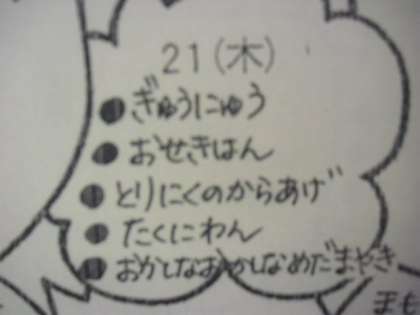 21(木)
●ぎゅうにゅう
●おせきはん
●とりにくのからあげ
●たくにわん
●おかしなおかしなめだまやき